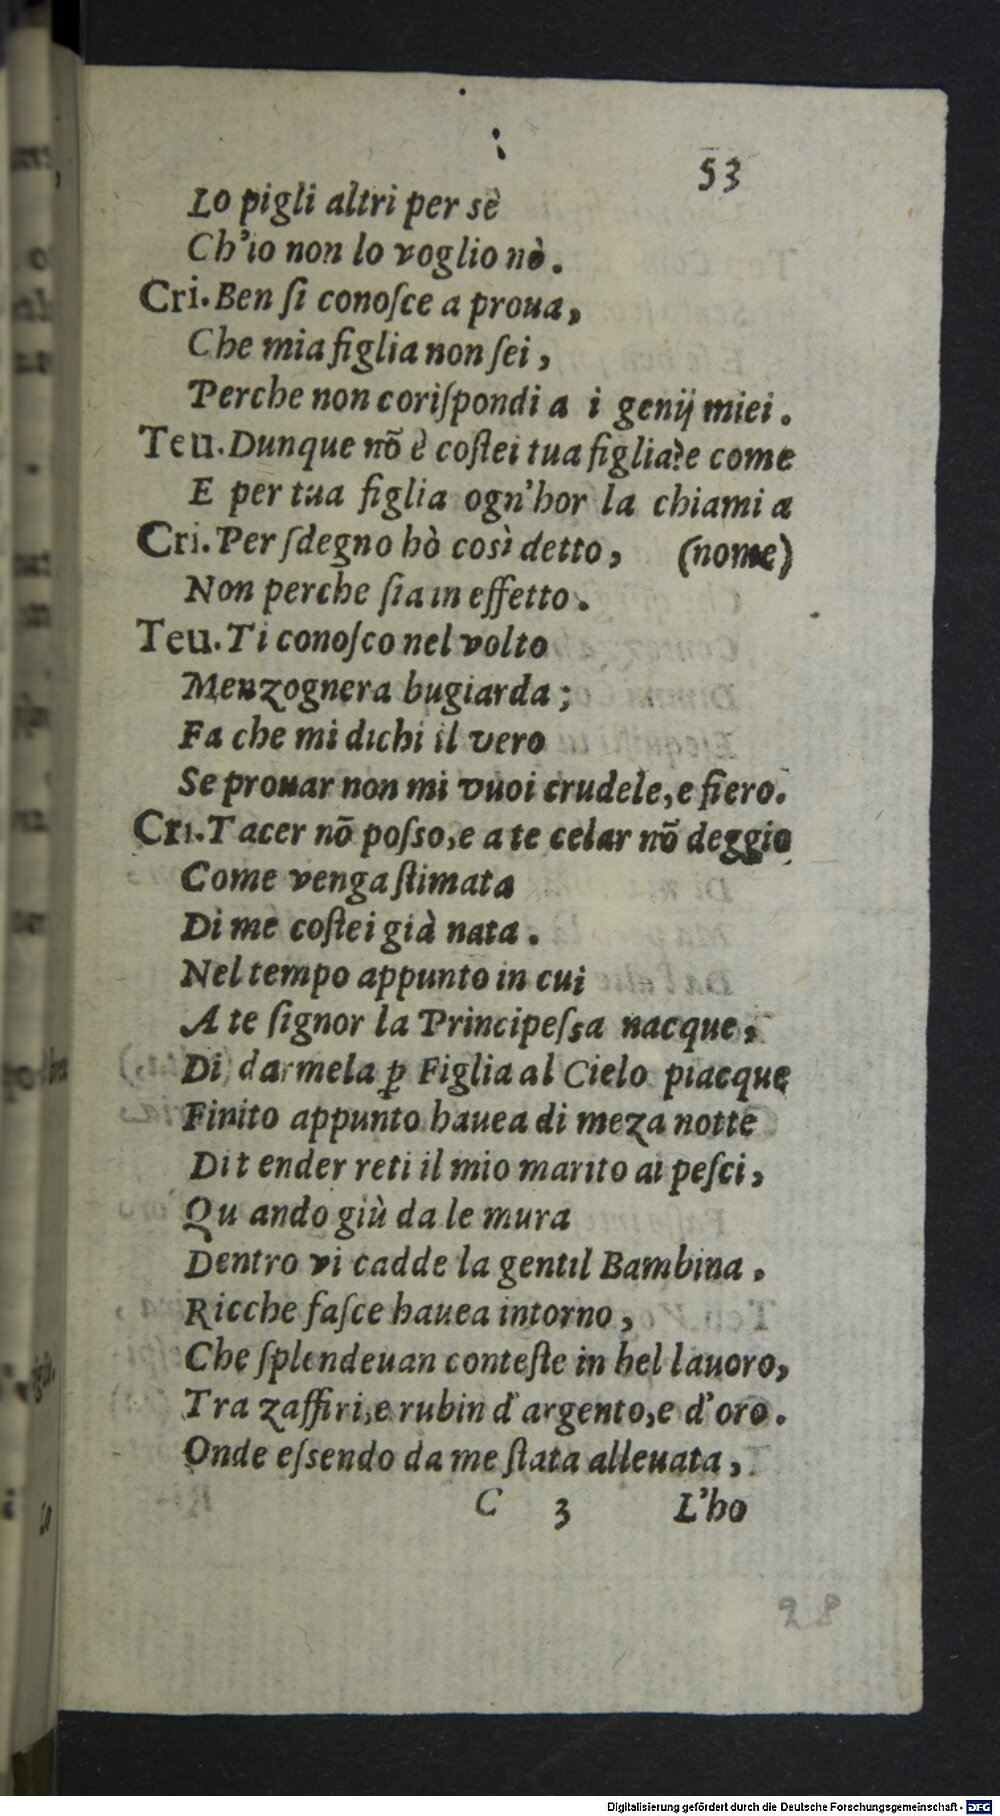 53
Lo pigli altri per sè
Ch'io non lo voglio nò.
Cri. Ben ſi conoſce a proua,
Che mia figlia non ſei,
Perche non coriſpondi a i genij miei.
Teu. Dunque nõ è coſtei tua figlia? e come
E per tua figlia ogn'hor la chiami a
Cri. Per ſdegno hò così detto, (nome)
Non perche ſia in effetto.
Teu. Ti conoſco nel volto
Menzognera bugiarda;
Fa che mi dichi il vero
Se prouar non mi vuoi crudele, e fiero.
Cri. Tacer nõ poſso, e a te celar nõ deggio
Come venga ſtimata
Di me coſtei già nata.
Nel tempo appunto in cui
A te ſignor la Principeſsa nacque,
Di darmela ꝑ Figlia al Cielo piacque
Finito appunto hauea di meza notte
Dit ender reti il mio marito ai peſci,
Qu ando giù da le mura
Dentro vi cadde la gentil Bambina.
Ricche faſce hauea intorno,
Che ſplendeuan conteſte in bel lauoro,
Tra zaffiri, e rubin d'argento, e d'oro.
Onde eſsendo da me ſtata alleuata,
C 3 L'ho
28
Digitalisierung gefördert durch die Deutsche Forschungsgemeinschaft - DFG